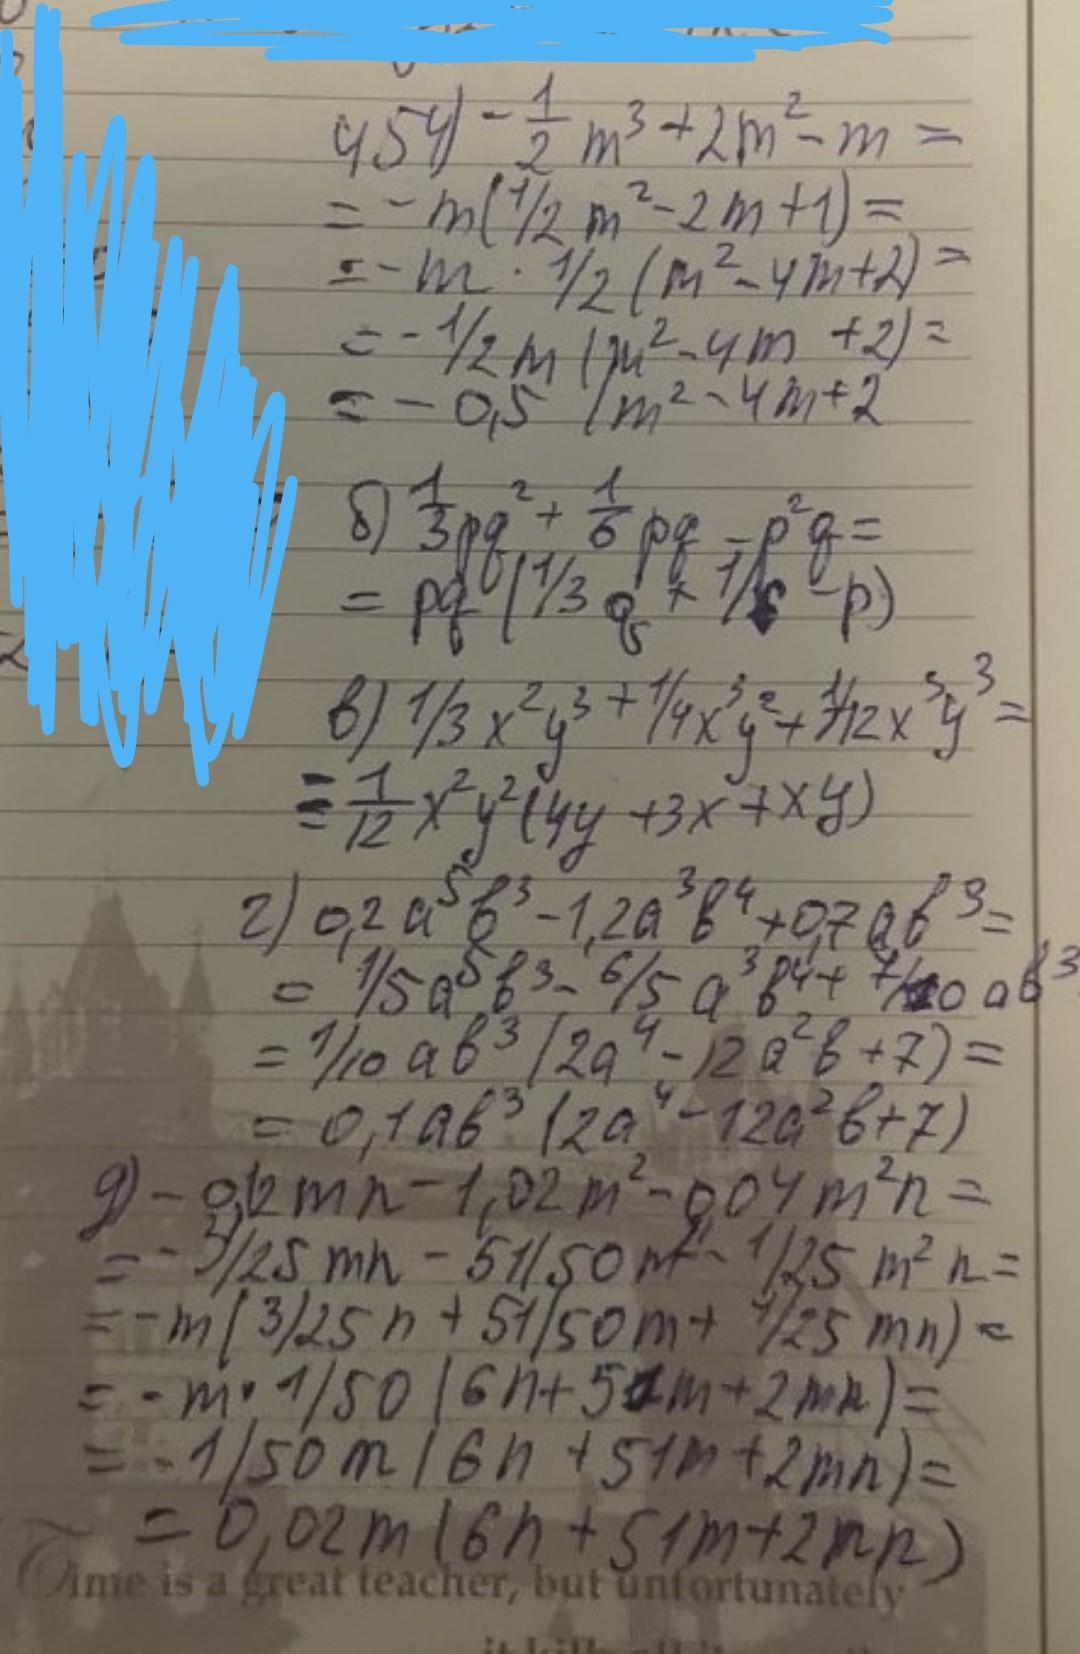 454) - 1/2 m³ + 2m² - m =
= - m(1/2 m² - 2m + 1) =
= - m · 1/2 (m² - 4m + 2) =
= - 1/2 m (m² - 4m + 2) =
= - 0,5 (m² - 4m + 2
б) 1/3 pq² + 1/6 pq - p²q =
= pq (1/3 q + 1/6 - p)
в) 1/3 x²y³ + 1/4 x³y² + 1/12 x³y³ =
= 1/12 x²y² (4y + 3x + xy)
г) 0,2 a⁵b³ - 1,2a³b⁴ + 0,7 ab³ =
= 1/5 a⁵b³ - 6/5 a³b⁴ + 7/10 ab³
= 1/10 ab³ (2a⁴ - 12a²b + 7) =
= 0,1ab³ (2a⁴ - 12a²b + 7)
д) - 0,12 mn - 1,02 m² - 0,04 m²n =
= - 3/25 mn - 51/50 m² - 1/25 m² n =
= - m (3/25 n + 51/50 m + 1/25 mn) =
= - m · 1/50 (6n + 51m + 2mn) =
= - 1/50 m (6n + 51m + 2mn) =
= 0,02m (6n + 51m + 2mn)
Time is a great teacher, but unfortunately
it kills all it